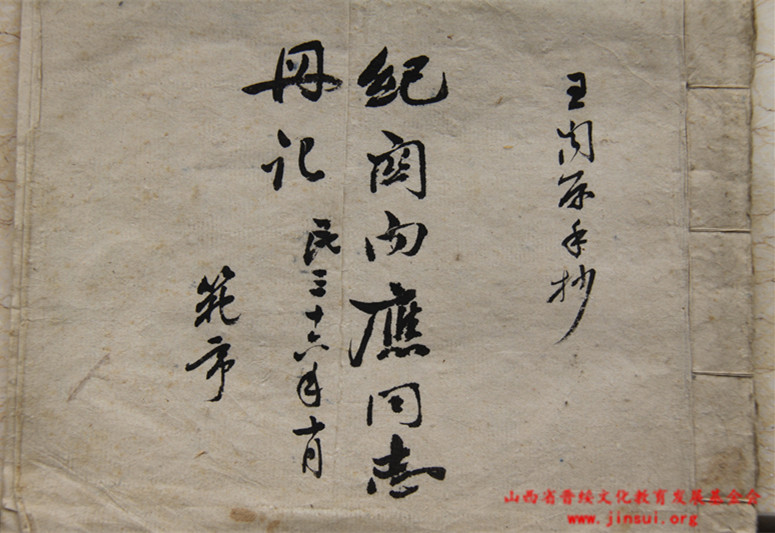 手抄
紀関向應同志
记
民三十六年十月
範亭
山西省晋绥文化教育发展基金会
www.jinsui.org